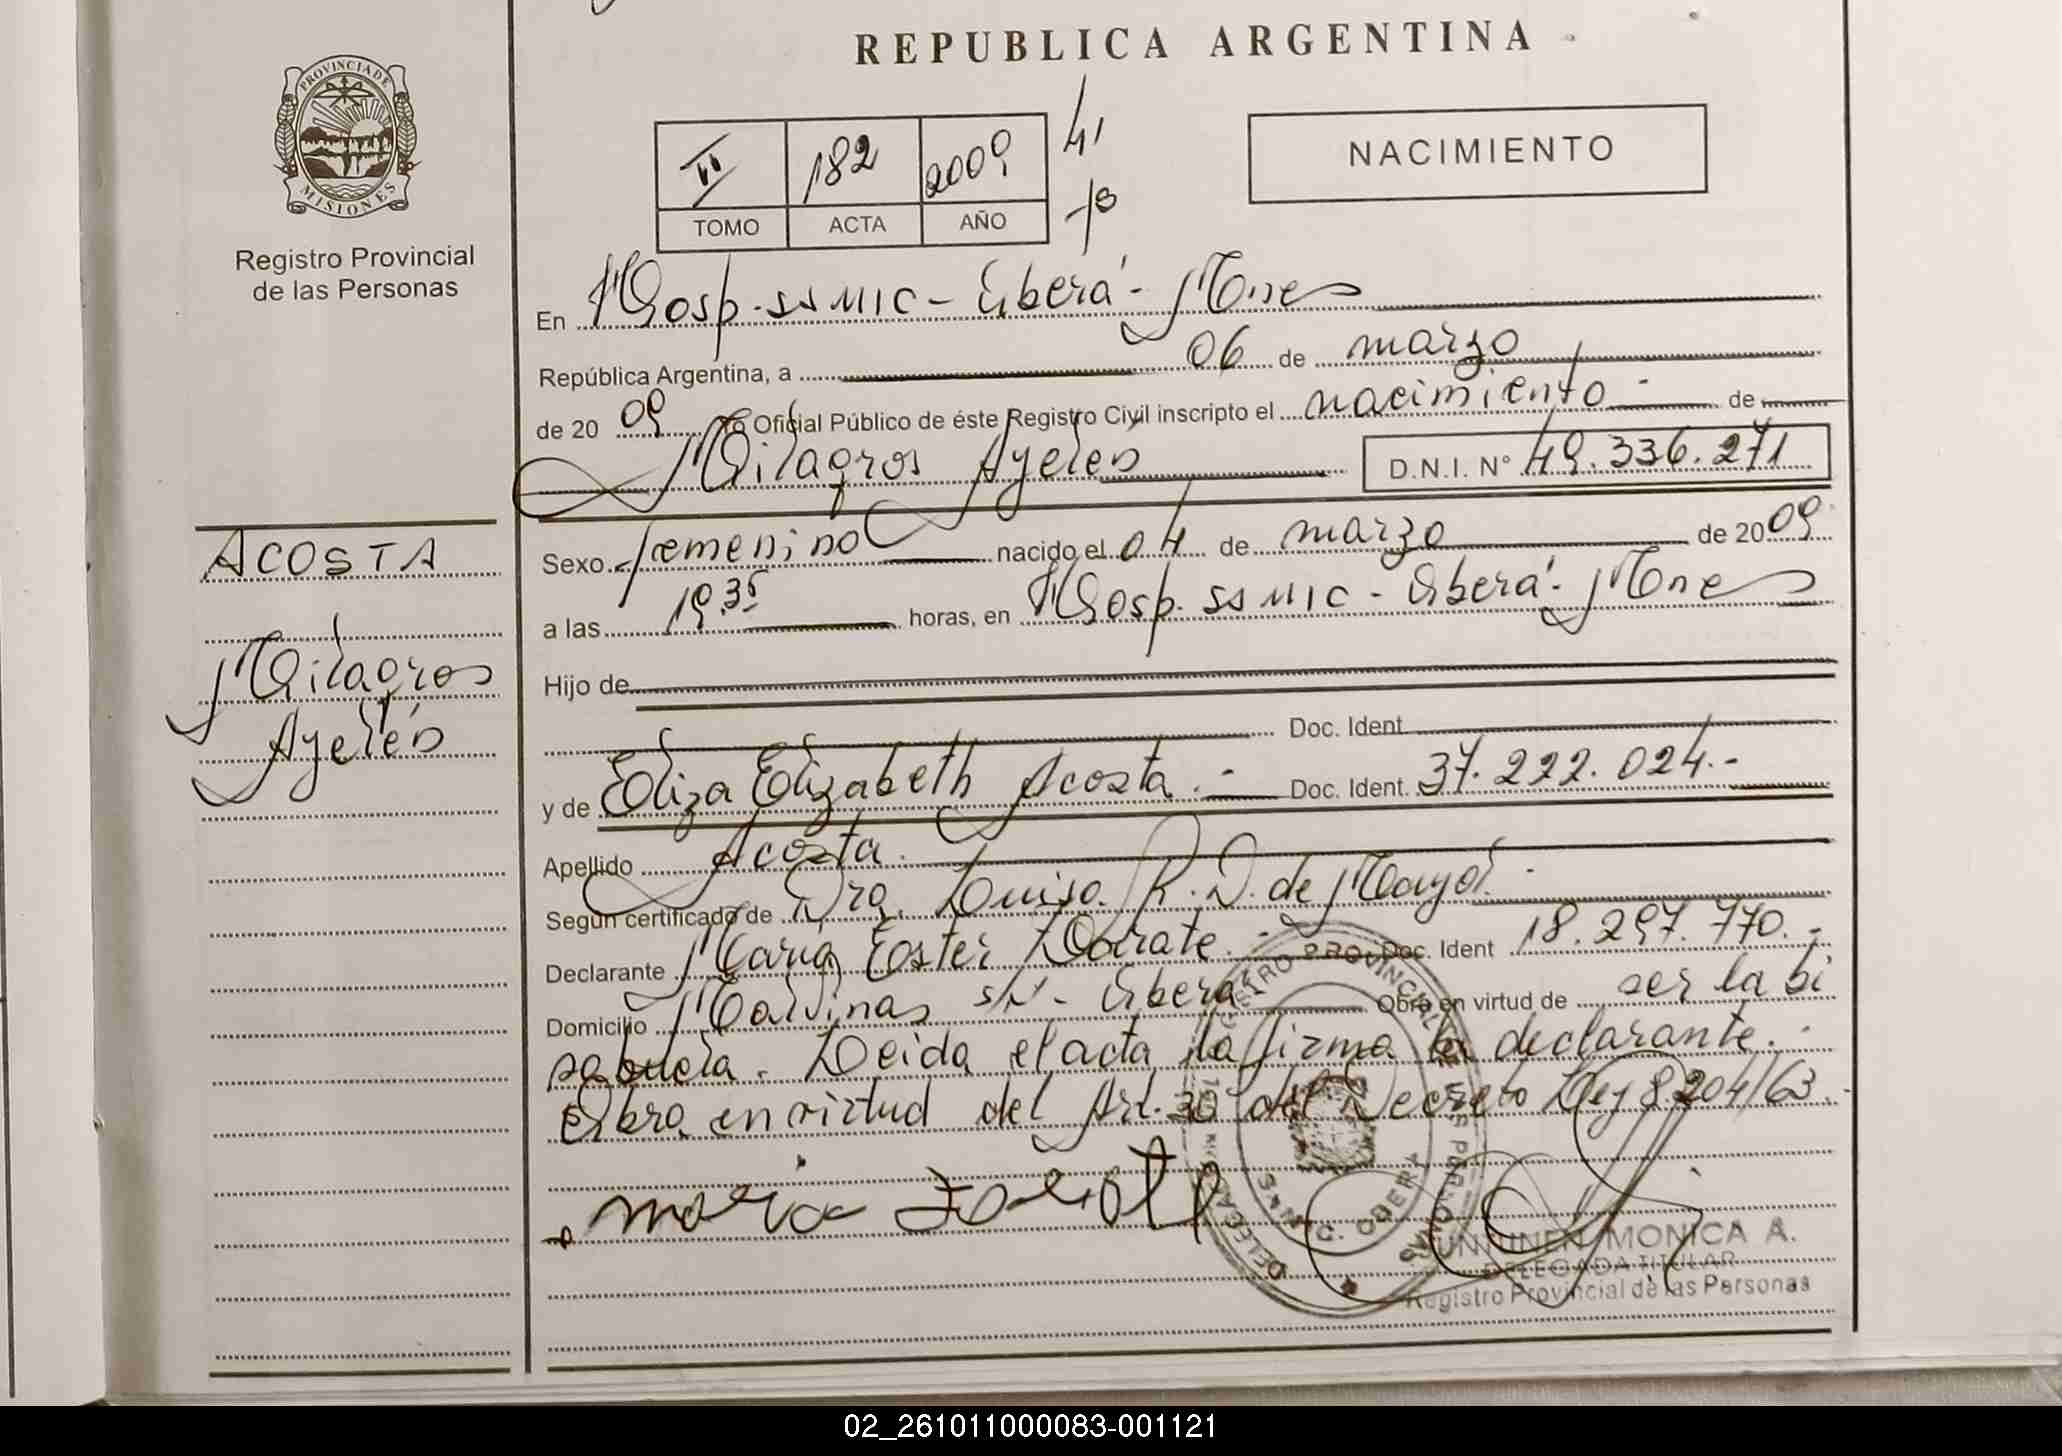 REPUBLICA ARGENTINA
PROVINCIA DE
MISIONES
Registro Provincial
de las Personas
II 182 2009 41
TOMO ACTA AÑO
NACIMIENTO
En Hosp. SSMIC - Oberá - Mnes
República Argentina, a 06 de marzo
de 20 09 Yo Oficial Público de éste Registro Civil inscripto el nacimiento - de
Milagros Ayelén D.N.I. Nº 49.336.271
ACOSTA
Milagros
Ayelén
Sexo femenino nacido el 04 de marzo de 20 09
a las 19.35 horas, en Hosp. SSMIC - Oberá - Mnes
Hijo de
Doc. Ident
y de Eliza Elizabeth Acosta.- Doc. Ident. 37.222.024.-
Apellido Acosta.
Según certificado de Dra. Luisa R. D. de
Declarante Maria Ester Doc. Ident 18.297.770.-
Domicilio Malvinas s/Nº - Oberá Obra en virtud de ser la bi
sabuela. Leida el acta la firma la declarante.-
Obra en virtud del Art. 30 del Decreto Ley 8204/63.-
maria
MONICA A.
DELEGADA TITULAR
Registro Provincial de las Personas
02_261011000083-001121